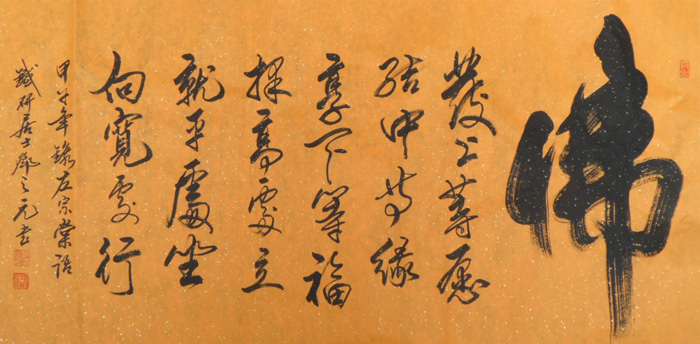 佛
發上等愿
结中等缘
享下等福
择高處立
就平處坐
向寬處行
甲午年錄左宗棠語
居士鄧之元书